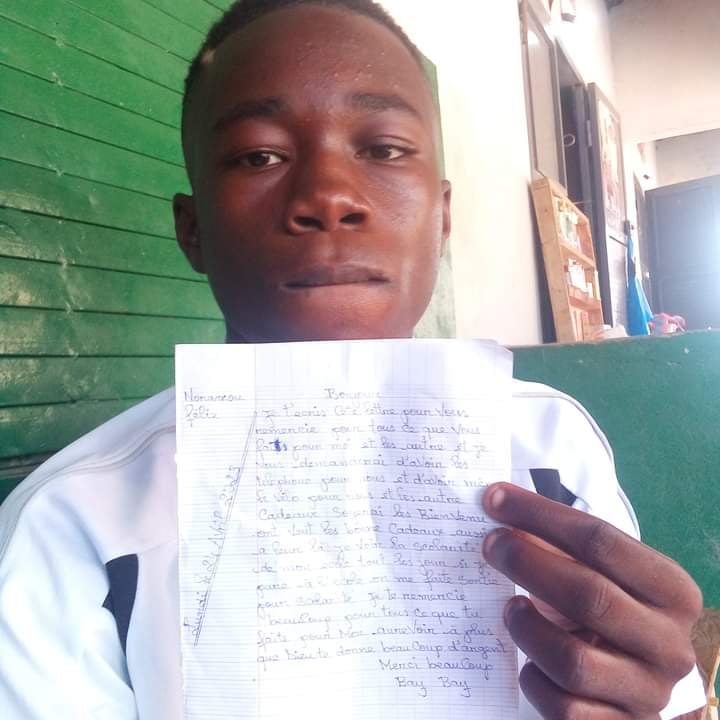 Bonjour
Félix
Je t'ecris Cette lettre pour Vous
remencie pour tous ce que Vous
faits pour moi et les autre et je
Vous demanderai d'avoir les
telephone pour nous et d'avoir même
le vélo pour nous et les autre
Cadeaux Seront les BienVenu
ont Veut les bonne Cadeaux aussi
Je Voir la scolarité
de mon ecole tout les jour si je
pare à l'ecole on me faite sortie
pour scolarité Je te remencie
beauCoup pour tous ce que tu
faits pour Moi aureVoir à plus
que Dieu te donne beauCoup d'argent
Merci beauCoup
Bay Bay